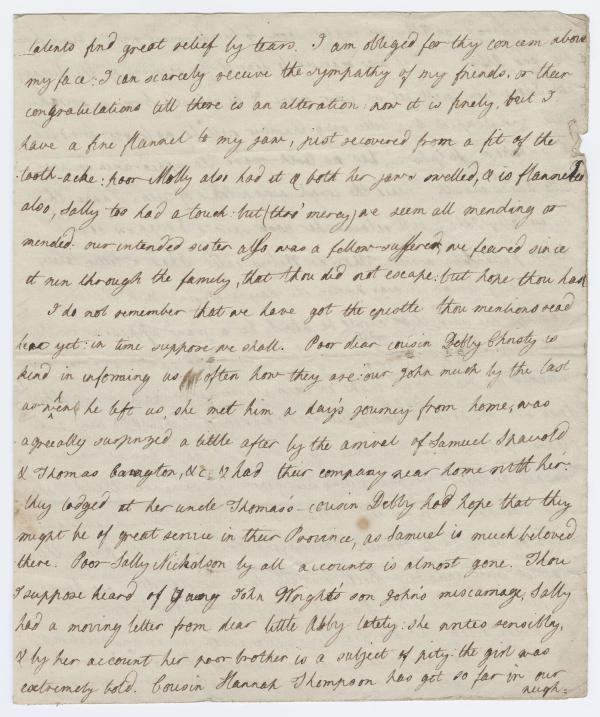 talents find great relief by tears. I am obliged for thy concern above
my face: I can scarcely receive the sympathy of my friends, or their
congratulations till there is an alteration: now it is finely, but I
have a fine flannel to my jaw, just recovered from a fit of the
tooth-ache: poor Molly also had it & both her jaws swelled, & is flannelled
also, Sally too had a touch: but (thro' mercy) we seem all mending or
mended: our intended sister also was a fellow-sufferer, we feared since
it run through the family, that thou did not escape: but hope thou had
I do not remember that we have got the epistle thou mentions read
here yet: in time suppose we shall. Poor dear cousin Debby Christy is
kind in informing us often how they are: our John much by the last
as when he left us, she met him a day's journey from home, was
agreeally surprized a little after by the arrival of Samuel Spavold
& Thomas Carrington, &c. & had their company near home with her:
they lodged at her uncle Thomas's - cousin Debby had hope that they
might be of great service in their Province, as Samuel is much beloved
there. Poor Sally Nickolson by all accounts is almost gone. Thou
I suppose heard of young John Wright's son John's miscarriage, Sally
had a moving letter from dear little Abby lately: she writes sensibly,
& by her account her poor brother is a subject of pity: the girl was
extremely bold. Cousin Hannah Thompson has got so far in our
neigh-